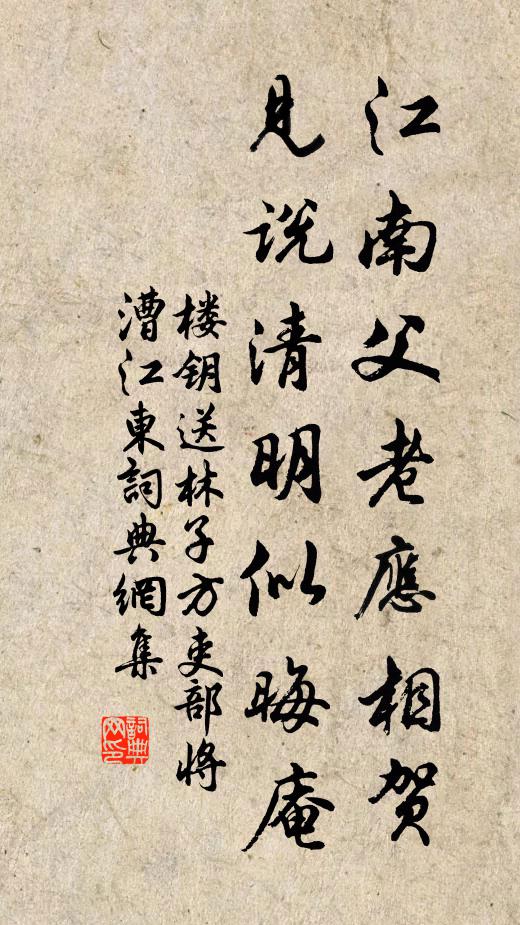 江南父老應相賀
見说清明似晦庵
楼钥送林子方吏部将
漕江東詞典網集
詞典网印